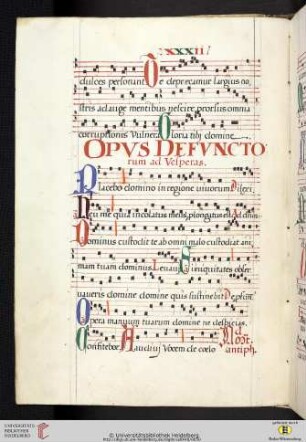 XXXII
dulces personant Te deprecamur largius no
stris adauge mentibus nescire prorsus omnia
corruptionis Vulnera Gloria tibi domine
OPVS DEFVNCTO
rum ad Vesperas.
Placebo domino in regione viuorum
Heu me quia incolatus meus prolongatus est
Dominus custodit te ab omni malo custodiat ani
mam tuam dominus Leuaui Si iniquitates obser
uaueris domine domine quis sustinebit
Opera manuum tuarum domine ne despicias
Confitebor Audiui Vocem de coelo Post
antiph.
UNIVERSITÄTS-
BIBLIOTHEK
HEIDELBERG
© Universitätsbibliothek Heidelberg